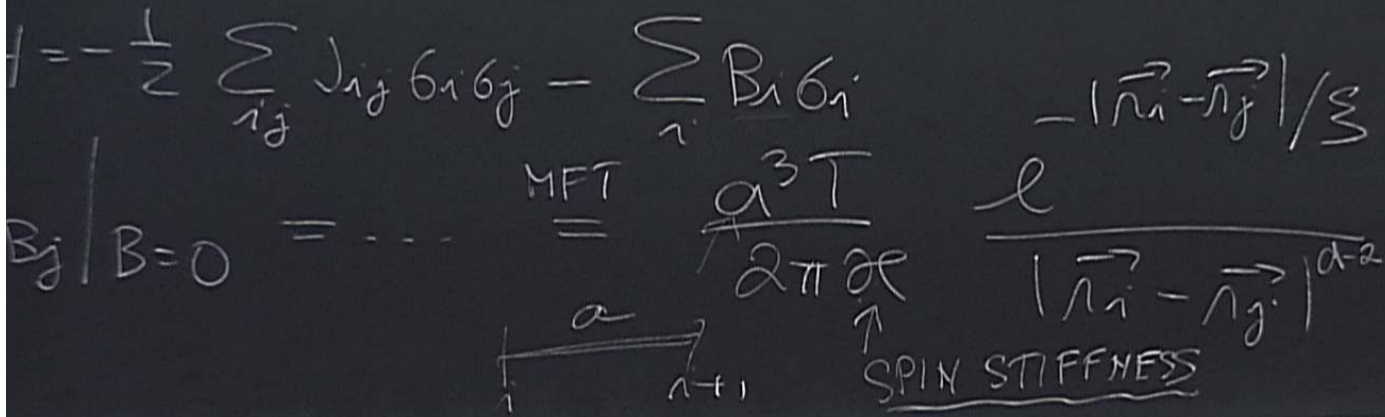 H = - 1/2 Σ_{ij} J_{ij} σ_i σ_j - Σ_i B_i σ_i
B_j | B=0 = .... MFT = a³T / 2πϰ e^{-|r⃗_i - r⃗_j|/ξ} / |r⃗_i - r⃗_j|^{d-2}
a
i i+1
↑
SPIN STIFFNESS